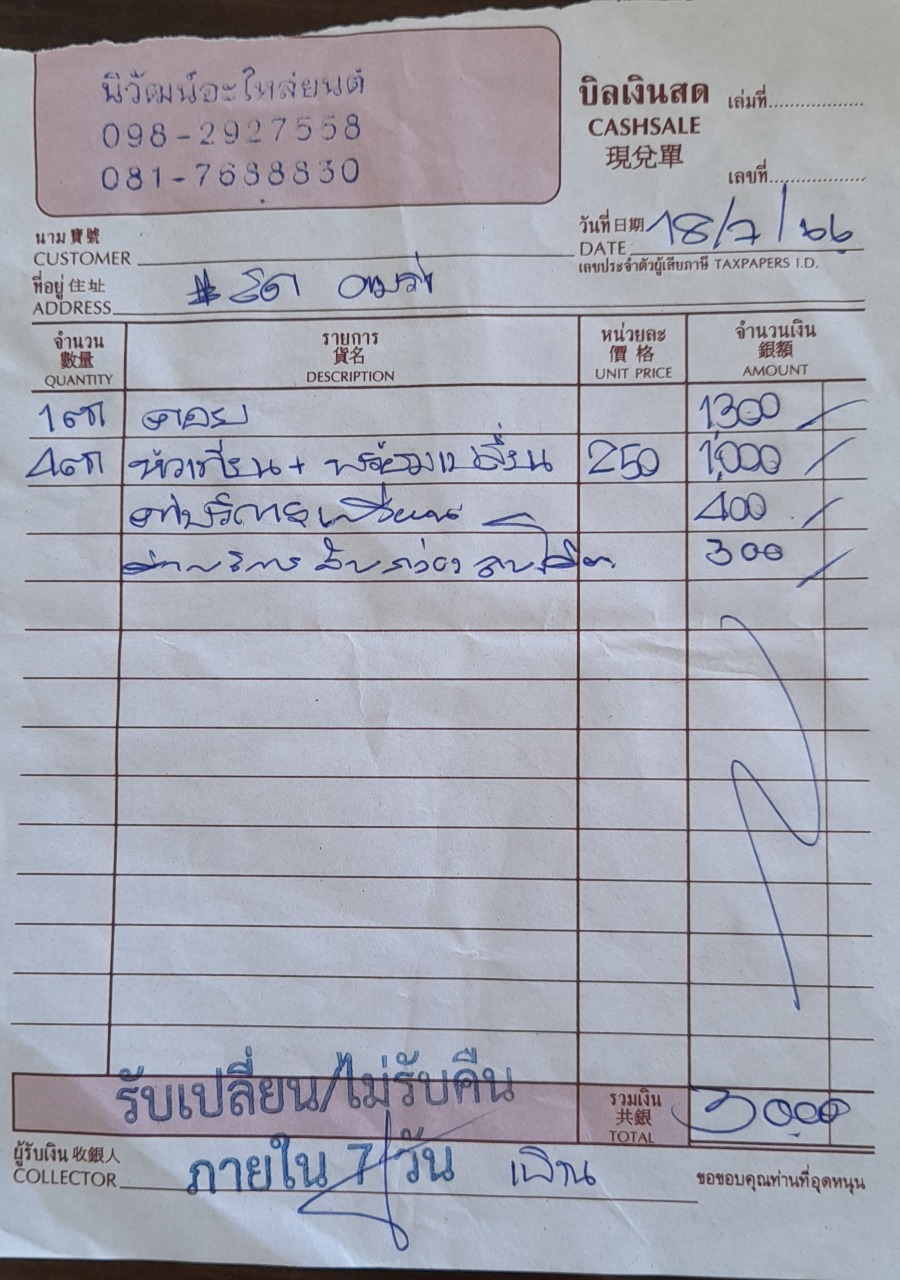 นิวัฒน์อะไหล่ยนต์
098-2927558
081-7688830
บิลเงินสด
CASHSALE
現兌單
เล่มที่
เลขที่
นาม 寶號
CUSTOMER
วันที่ 日期
DATE 18/7/66
เลขประจำตัวผู้เสียภาษี TAXPAPERS I.D.
ที่อยู่ 住址
ADDRESS
จำนวน 數量 QUANTITY
รายการ 貨名 DESCRIPTION
หน่วยละ 價格 UNIT PRICE
จำนวนเงิน 銀額 AMOUNT
1 คอย 1300
4 หัวเทียน + พร้อมเปลี่ยน 250 1,000
400
ค่าบริการ 300
รับเปลี่ยน/ไม่รับคืน
ภายใน 7 วัน
รวมเงิน 共銀 TOTAL 3000
ผู้รับเงิน 收銀人
COLLECTOR
ขอขอบคุณท่านที่อุดหนุน